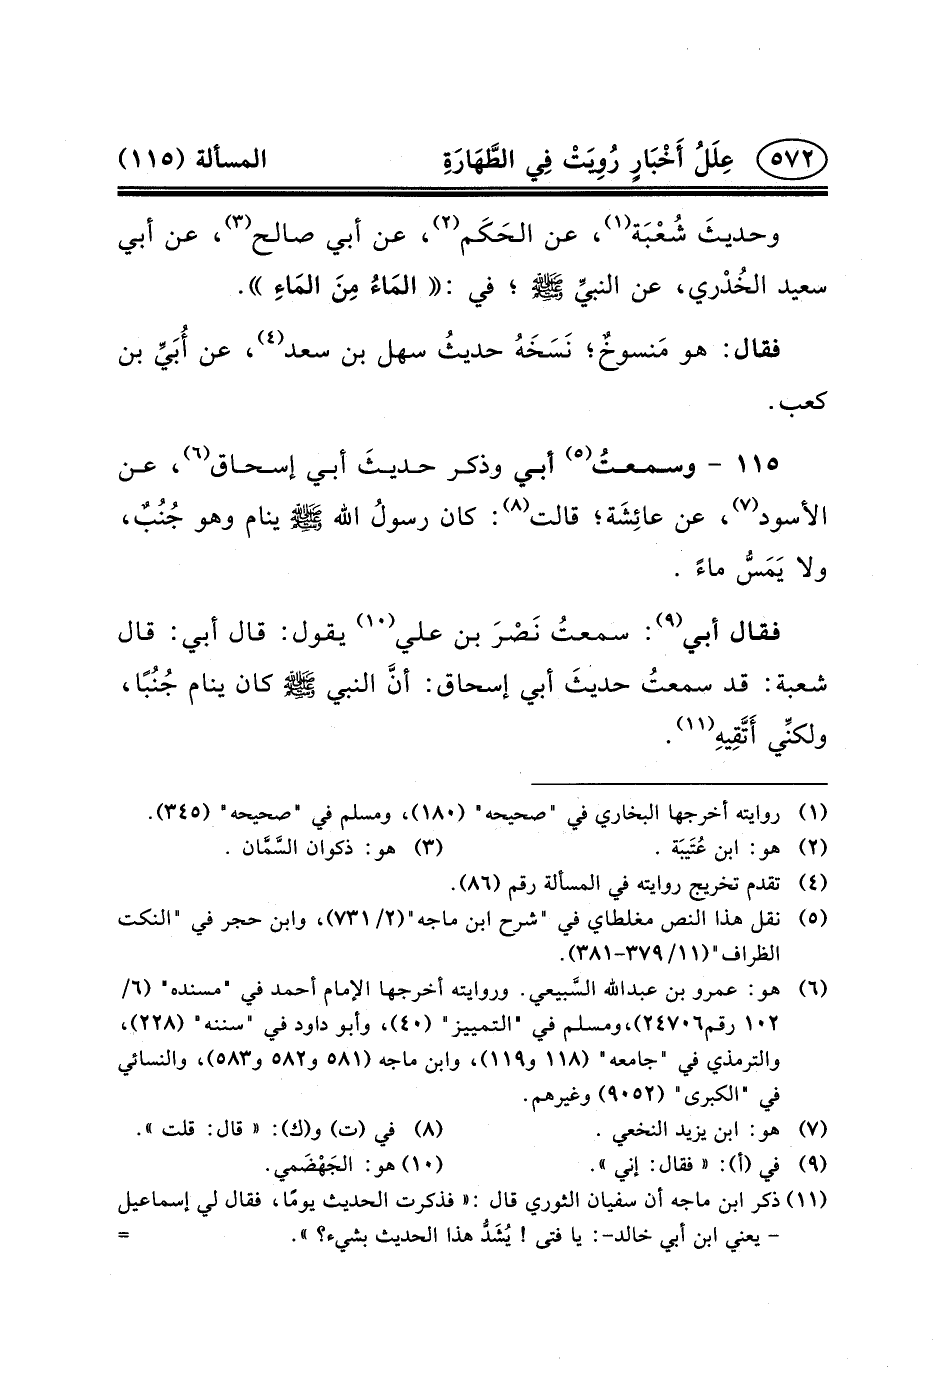 ٥٧٢ عِلَلُ أَخْبَارٍ رُوِيَتْ فِي الطَّهَارَةِ المسألة (١١٥)
وحديثَ شُعْبَة(١)، عن الحَكَم(٢)، عن أبي صالح(٣)، عن أبي
سعيد الخُدْري، عن النبيِّ ﷺ ؛ في :« المَاءُ مِنَ المَاءِ ».
فقال: هو مَنسوخٌ؛ نَسَخَهُ حديثُ سهل بن سعد(٤)، عن أُبَيِّ بن
كعب.
١١٥ - وسمعتُ(٥) أبي وذكر حديثَ أبي إسحاق(٦)، عن
الأسود(٧)، عن عائِشَة؛ قالت(٨): كان رسولُ الله ﷺ ينام وهو جُنُبٌ،
ولا يَمَسُّ ماءً .
فقال أبي(٩): سمعتُ نَصْرَ بن علي(١٠) يقول: قال أبي: قال
شعبة: قد سمعتُ حديثَ أبي إسحاق: أنَّ النبي ﷺ كان ينام جُنُبًا،
ولكنِّي أَتَّقِيهِ(١١).
(١) روايته أخرجها البخاري في "صحيحه" (١٨٠)، ومسلم في "صحيحه" (٣٤٥).
(٢) هو: ابن عُتَيبَة . (٣) هو: ذكوان السَّمَّان .
(٤) تقدم تخريج روايته في المسألة رقم (٨٦).
(٥) نقل هذا النص مغلطاي في "شرح ابن ماجه"(٢/ ٧٣١)، وابن حجر في "النكت
الظراف"(١١/ ٣٧٩-٣٨١).
(٦) هو: عمرو بن عبدالله السَّبيعي. وروايته أخرجها الإمام أحمد في "مسنده" (٦/
١٠٢ رقم٢٤٧٠٦)،ومسلم في "التمييز" (٤٠)، وأبو داود في "سننه" (٢٢٨)،
والترمذي في "جامعه" (١١٨ و١١٩)، وابن ماجه (٥٨١ و٥٨٢ و٥٨٣)، والنسائي
في "الكبرى" (٩٠٥٢) وغيرهم.
(٧) هو: ابن يزيد النخعي . (٨) في (ت) و(ك): « قال: قلت ».
(٩) في (أ): « فقال: إني ». (١٠) هو: الجَهْضَمي.
(١١) ذكر ابن ماجه أن سفيان الثوري قال :« فذكرت الحديث يومًا، فقال لي إسماعيل
- يعني ابن أبي خالد-: يا فتى ! يُشَدُّ هذا الحديث بشيء؟ ». =